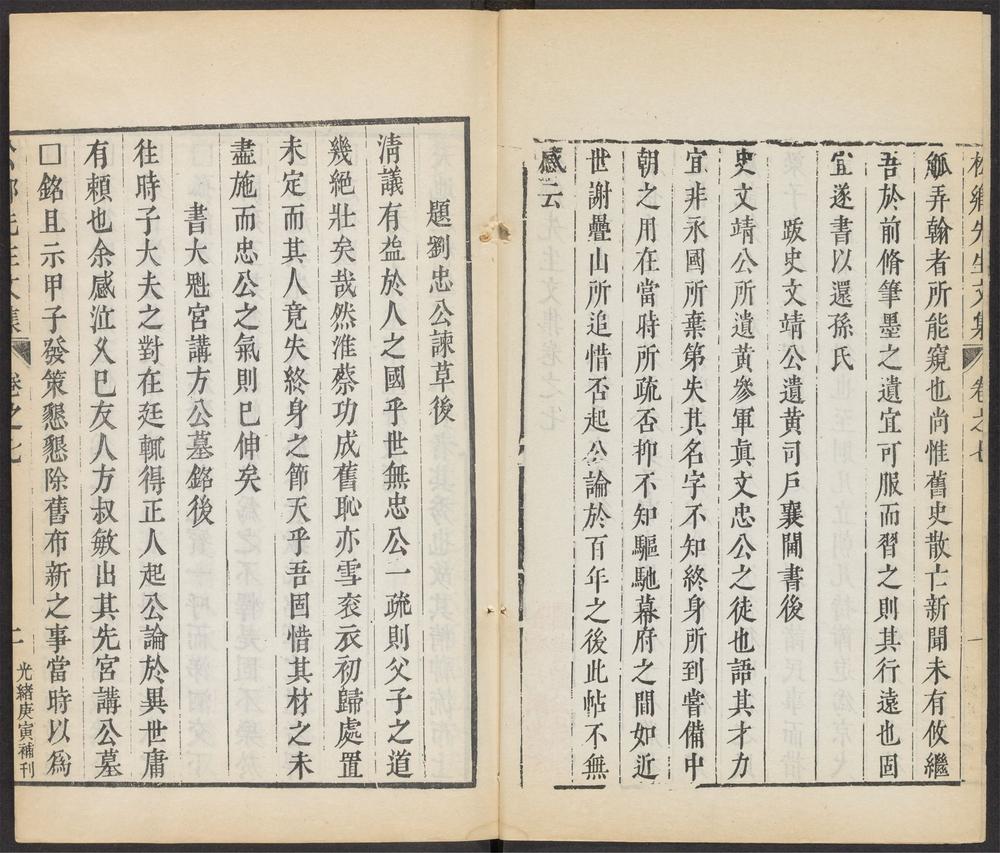 松鄉先生文集 卷之七 一
觚弄翰者所能窺也尚惟舊史散亡新聞未有攸繼
吾於前脩筆墨之遺宜可服而習之則其行遠也固
宜遂書以還孫氏
跋史文靖公遺黃司戶襄閫書後
史文靖公所遺黃參軍眞文忠公之徒也語其才力
宜非永國所棄第失其名字不知終身所到嘗備中
朝之用在當時所疏否抑不知驅馳幕府之間如近
世謝疊山所追惜否起公論於百年之後此帖不無
感云
題劉忠公諫草後
淸議有益於人之國乎世無忠公一疏則父子之道
幾絕壯矣哉然淮蔡功成舊恥亦雪衮衣初歸處置
未定而其人竟失終身之節天乎吾固惜其材之未
盡施而忠公之氣則已伸矣
書大魁宮講方公墓銘後
往時子大夫之對在廷輒得正人起公論於異世庸
有賴也余感泣乂巳友人方叔敏出其先宮講公墓
□銘且示甲子發策懇懇除舊布新之事當時以爲
松鄉先生文集 卷之七 二 光緒庚寅補刊